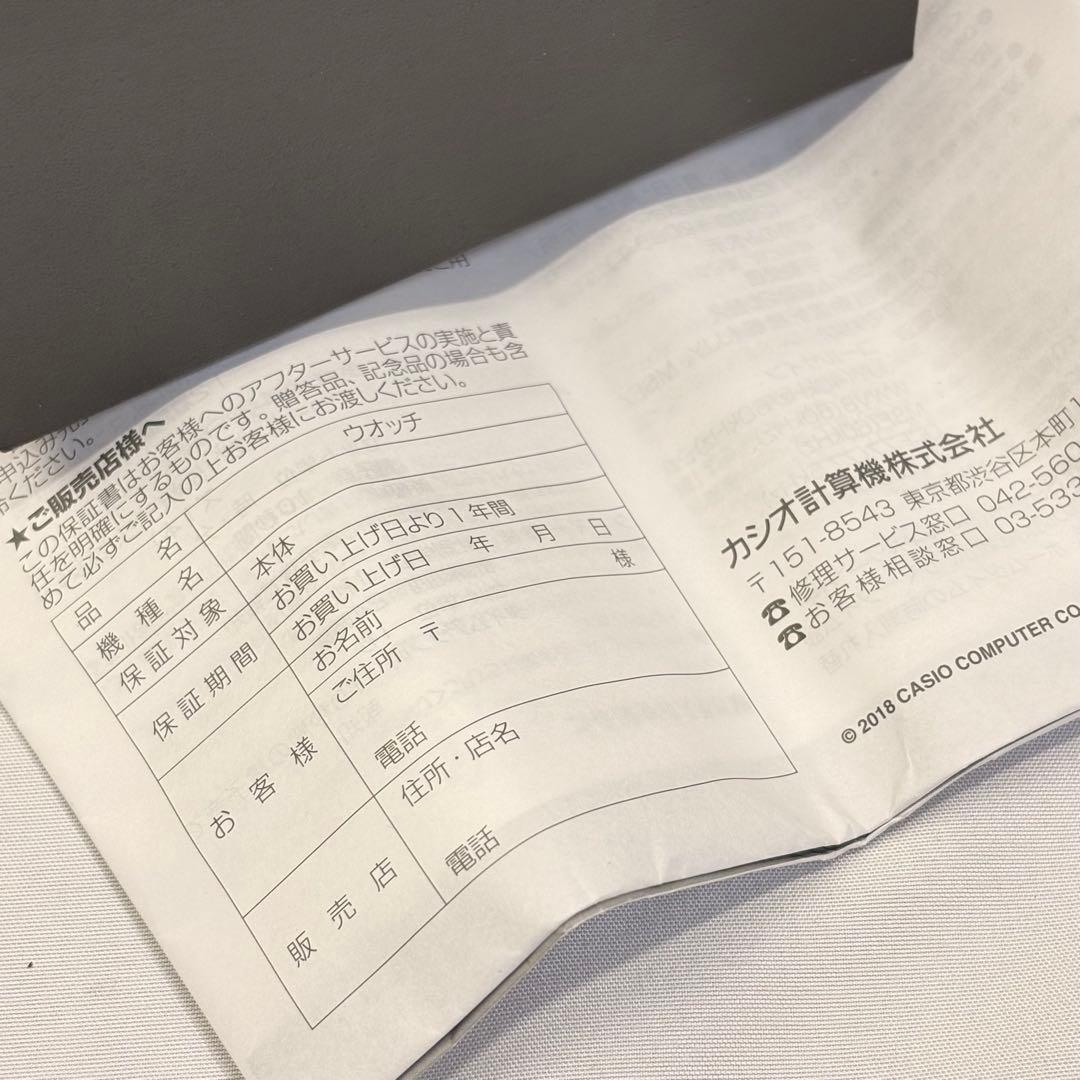 ください。
★ご販売店様へ
この保証書はお客様へのアフターサービスの実施と責
任を明確にするものです。贈答品、記念品の場合も含
めて必ずご記入の上お客様にお渡しください。
品名 ウオッチ
機種名
保証対象 本体
保証期間 お買い上げ日より1年間
お買い上げ日 年 月 日
お客様 お名前 様
ご住所 〒
電話
販売店 住所・店名
電話
カシオ計算機株式会社
〒151-8543 東京都渋谷区本町1
☎修理サービス窓口 042-560
☎お客様相談窓口 03-533
© 2018 CASIO COMPUTER CO.